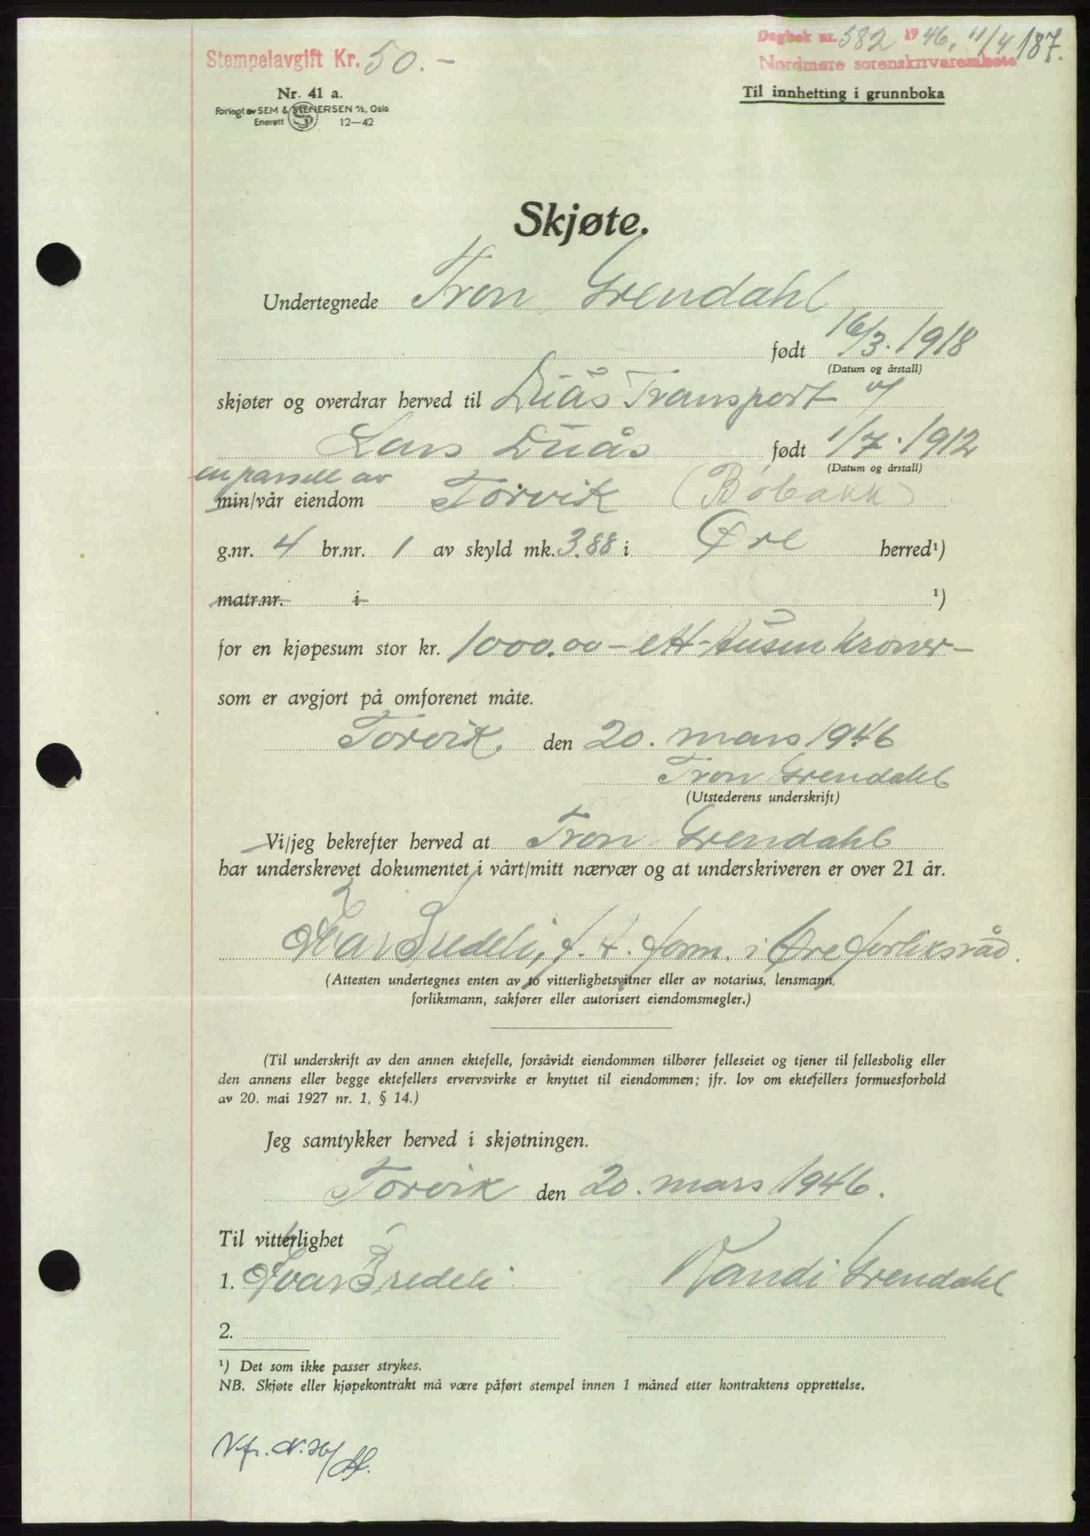 Stempelavgift Kr. 50.-
Dagbok nr. 582 1946, 11/4 187.
Nordmøre sorenskriverembete
Nr. 41 a.
Forlagt av SEM & STENERSEN A/S, Oslo
Enerett S 12—42
Til innhefting i grunnboka
Skjøte.
Undertegnede Tron Grendahl
født 16/3. 1918
(Datum og årstall)
skjøter og overdrar herved til Duås Transport v/
Lars Duås født 1/7. 1912
(Datum og årstall)
en parsell av
min/vår eiendom Torvik (Bøbakk)
g.nr. 4 br.nr. 1 av skyld mk. 3.88 i Øre herred¹)
matr.nr. i ¹)
for en kjøpesum stor kr. 1000.00 - ett-tusen kroner -
som er avgjort på omforenet måte.
Torvik, den 20. mars 1946
Tron Grendahl
(Utstederens underskrift)
Vi/jeg bekrefter herved at Tron Grendahl
har underskrevet dokumentet i vårt/mitt nærvær og at underskriveren er over 21 år.
Ivar Bredeli, f. t. form. i Øre forliksråd.
(Attesten undertegnes enten av to vitterlighetsvitner eller av notarius, lensmann,
forliksmann, sakfører eller autorisert eiendomsmegler.)
(Til underskrift av den annen ektefelle, forsåvidt eiendommen tilhører felleseiet og tjener til fellesbolig eller
den annens eller begge ektefellers ervervsvirke er knyttet til eiendommen; jfr. lov om ektefellers formuesforhold
av 20. mai 1927 nr. 1, § 14.)
Jeg samtykker herved i skjøtningen.
Torvik den 20. mars 1946.
Til vitterlighet
1. Ivar Bredeli Randi Grendahl
2.
¹) Det som ikke passer strykes.
NB. Skjøte eller kjøpekontrakt må være påført stempel innen 1 måned etter kontraktens opprettelse.